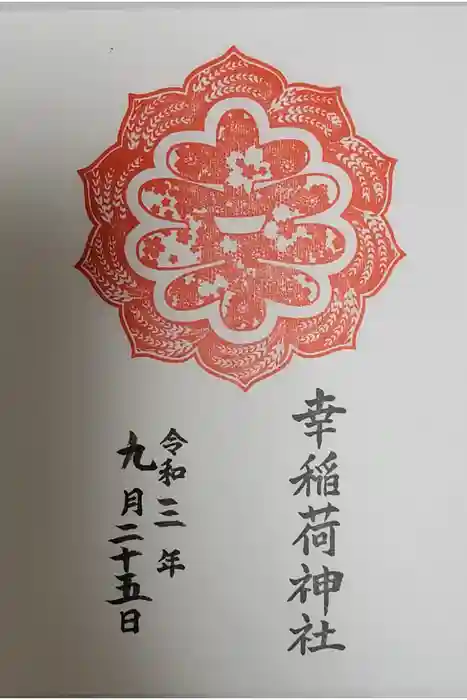 幸
幸稲荷神社
令和三年
九月二十五日